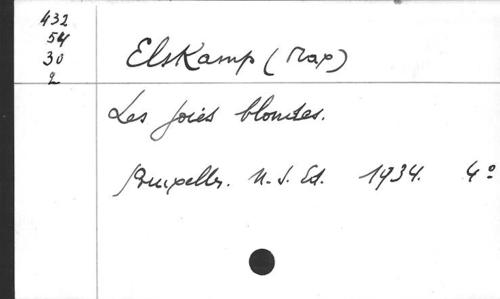 432
54
30
2
Elskamp (Max)
Les joies blondes.
Bruxelles. N. S. Ed. 1934. 4°